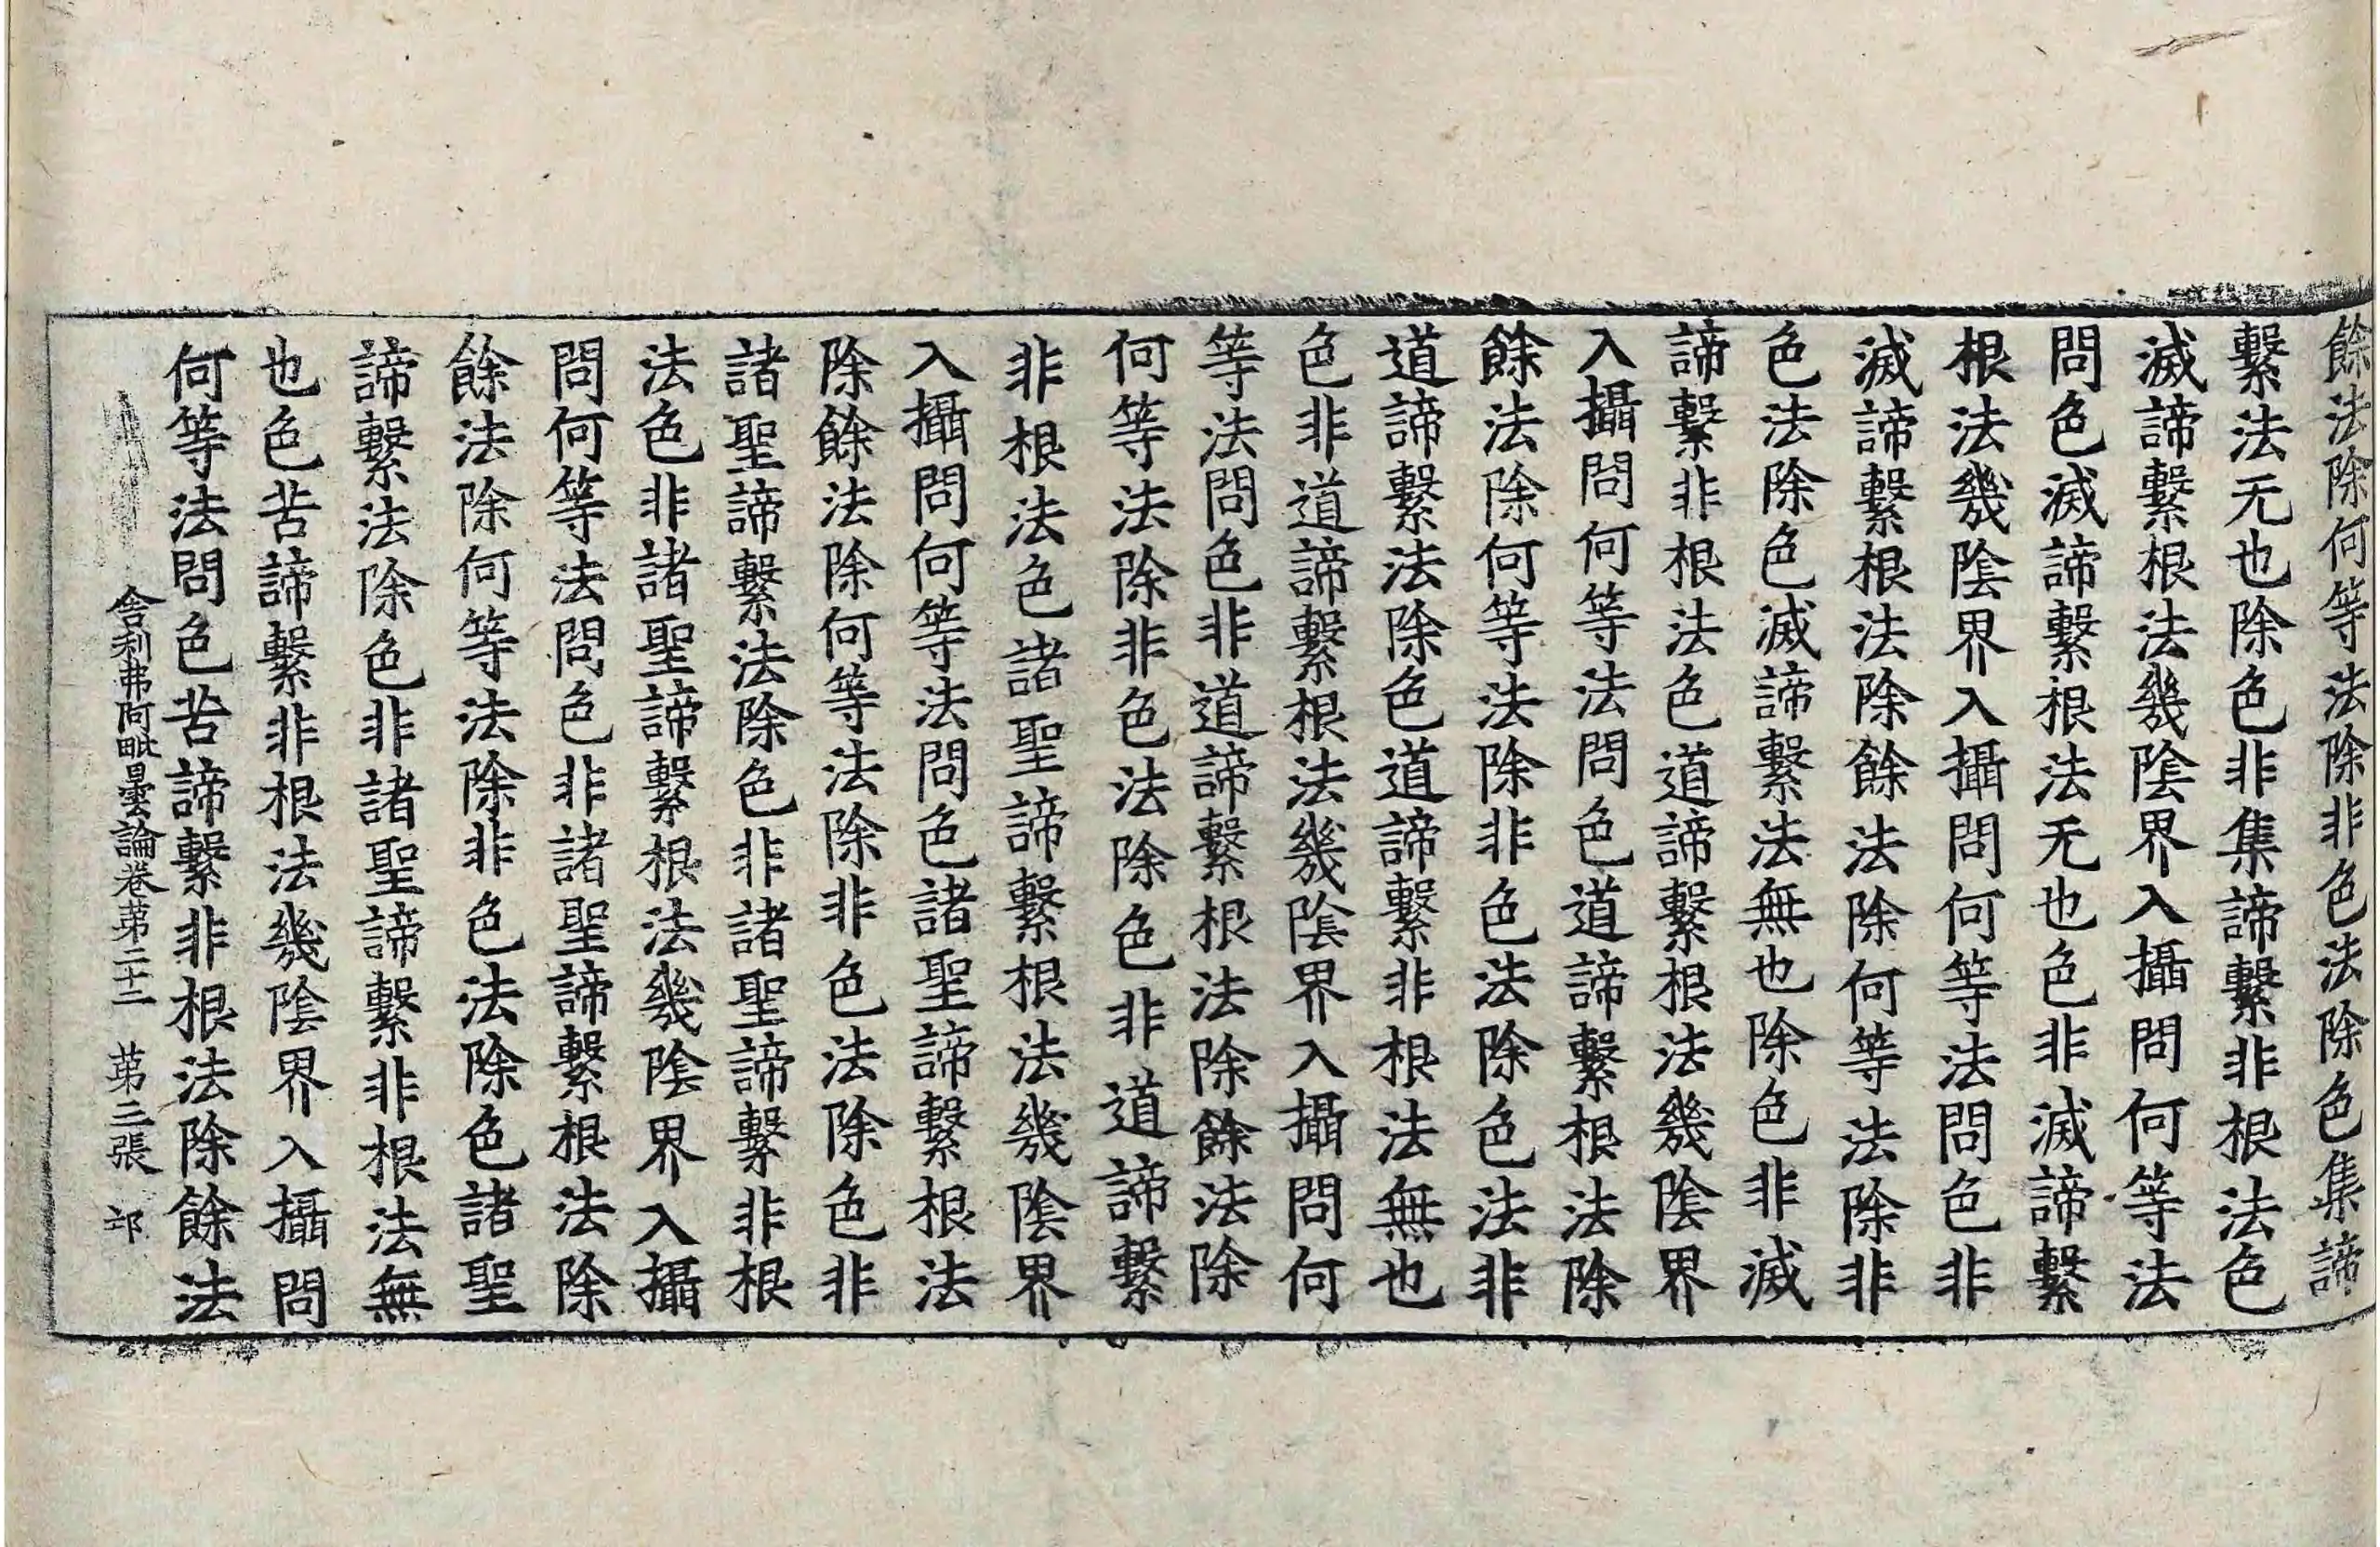 餘法除何等法除非色法除色集諦
繫法无也除色非集諦繫非根法色
滅諦繫根法幾陰界入攝問何等法
問色滅諦繫根法无也色非滅諦繫
根法幾陰界入攝問何等法問色非
滅諦繫根法除餘法除何等法除非
色法除色滅諦繫法無也除色非滅
諦繫非根法色道諦繫根法幾陰界
入攝問何等法問色道諦繫根法除
餘法除何等法除非色法除色法非
道諦繫法除色道諦繫非根法無也
色非道諦繫根法幾陰界入攝問何
等法問色非道諦繫根法除餘法除
何等法除非色法除色非道諦繫
非根法色諸聖諦繫根法幾陰界
入攝問何等法問色諸聖諦繫根法
除餘法除何等法除非色法除色非
諸聖諦繫法除色非諸聖諦繫非根
法色非諸聖諦繫根法幾陰界入攝
問何等法問色非諸聖諦繫根法除
餘法除何等法除非色法除色諸聖
諦繫法除色非諸聖諦繫非根法無
也色苦諦繫非根法幾陰界入攝問
何等法問色苦諦繫非根法除餘法
舍利弗阿毗曇論卷第二十二 第三張